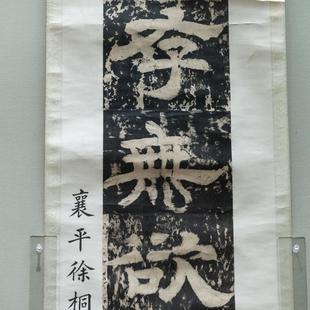 存無欲
襄平徐桐